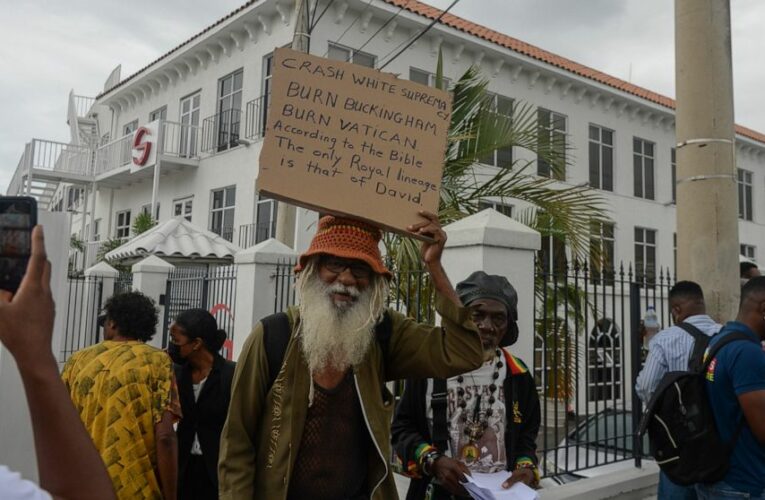 CRASH WHITE SUPREMACY
BURN BUCKINGHAM
BURN VATICAN.
According to the Bible
The only Royal lineage
is that of David.
S